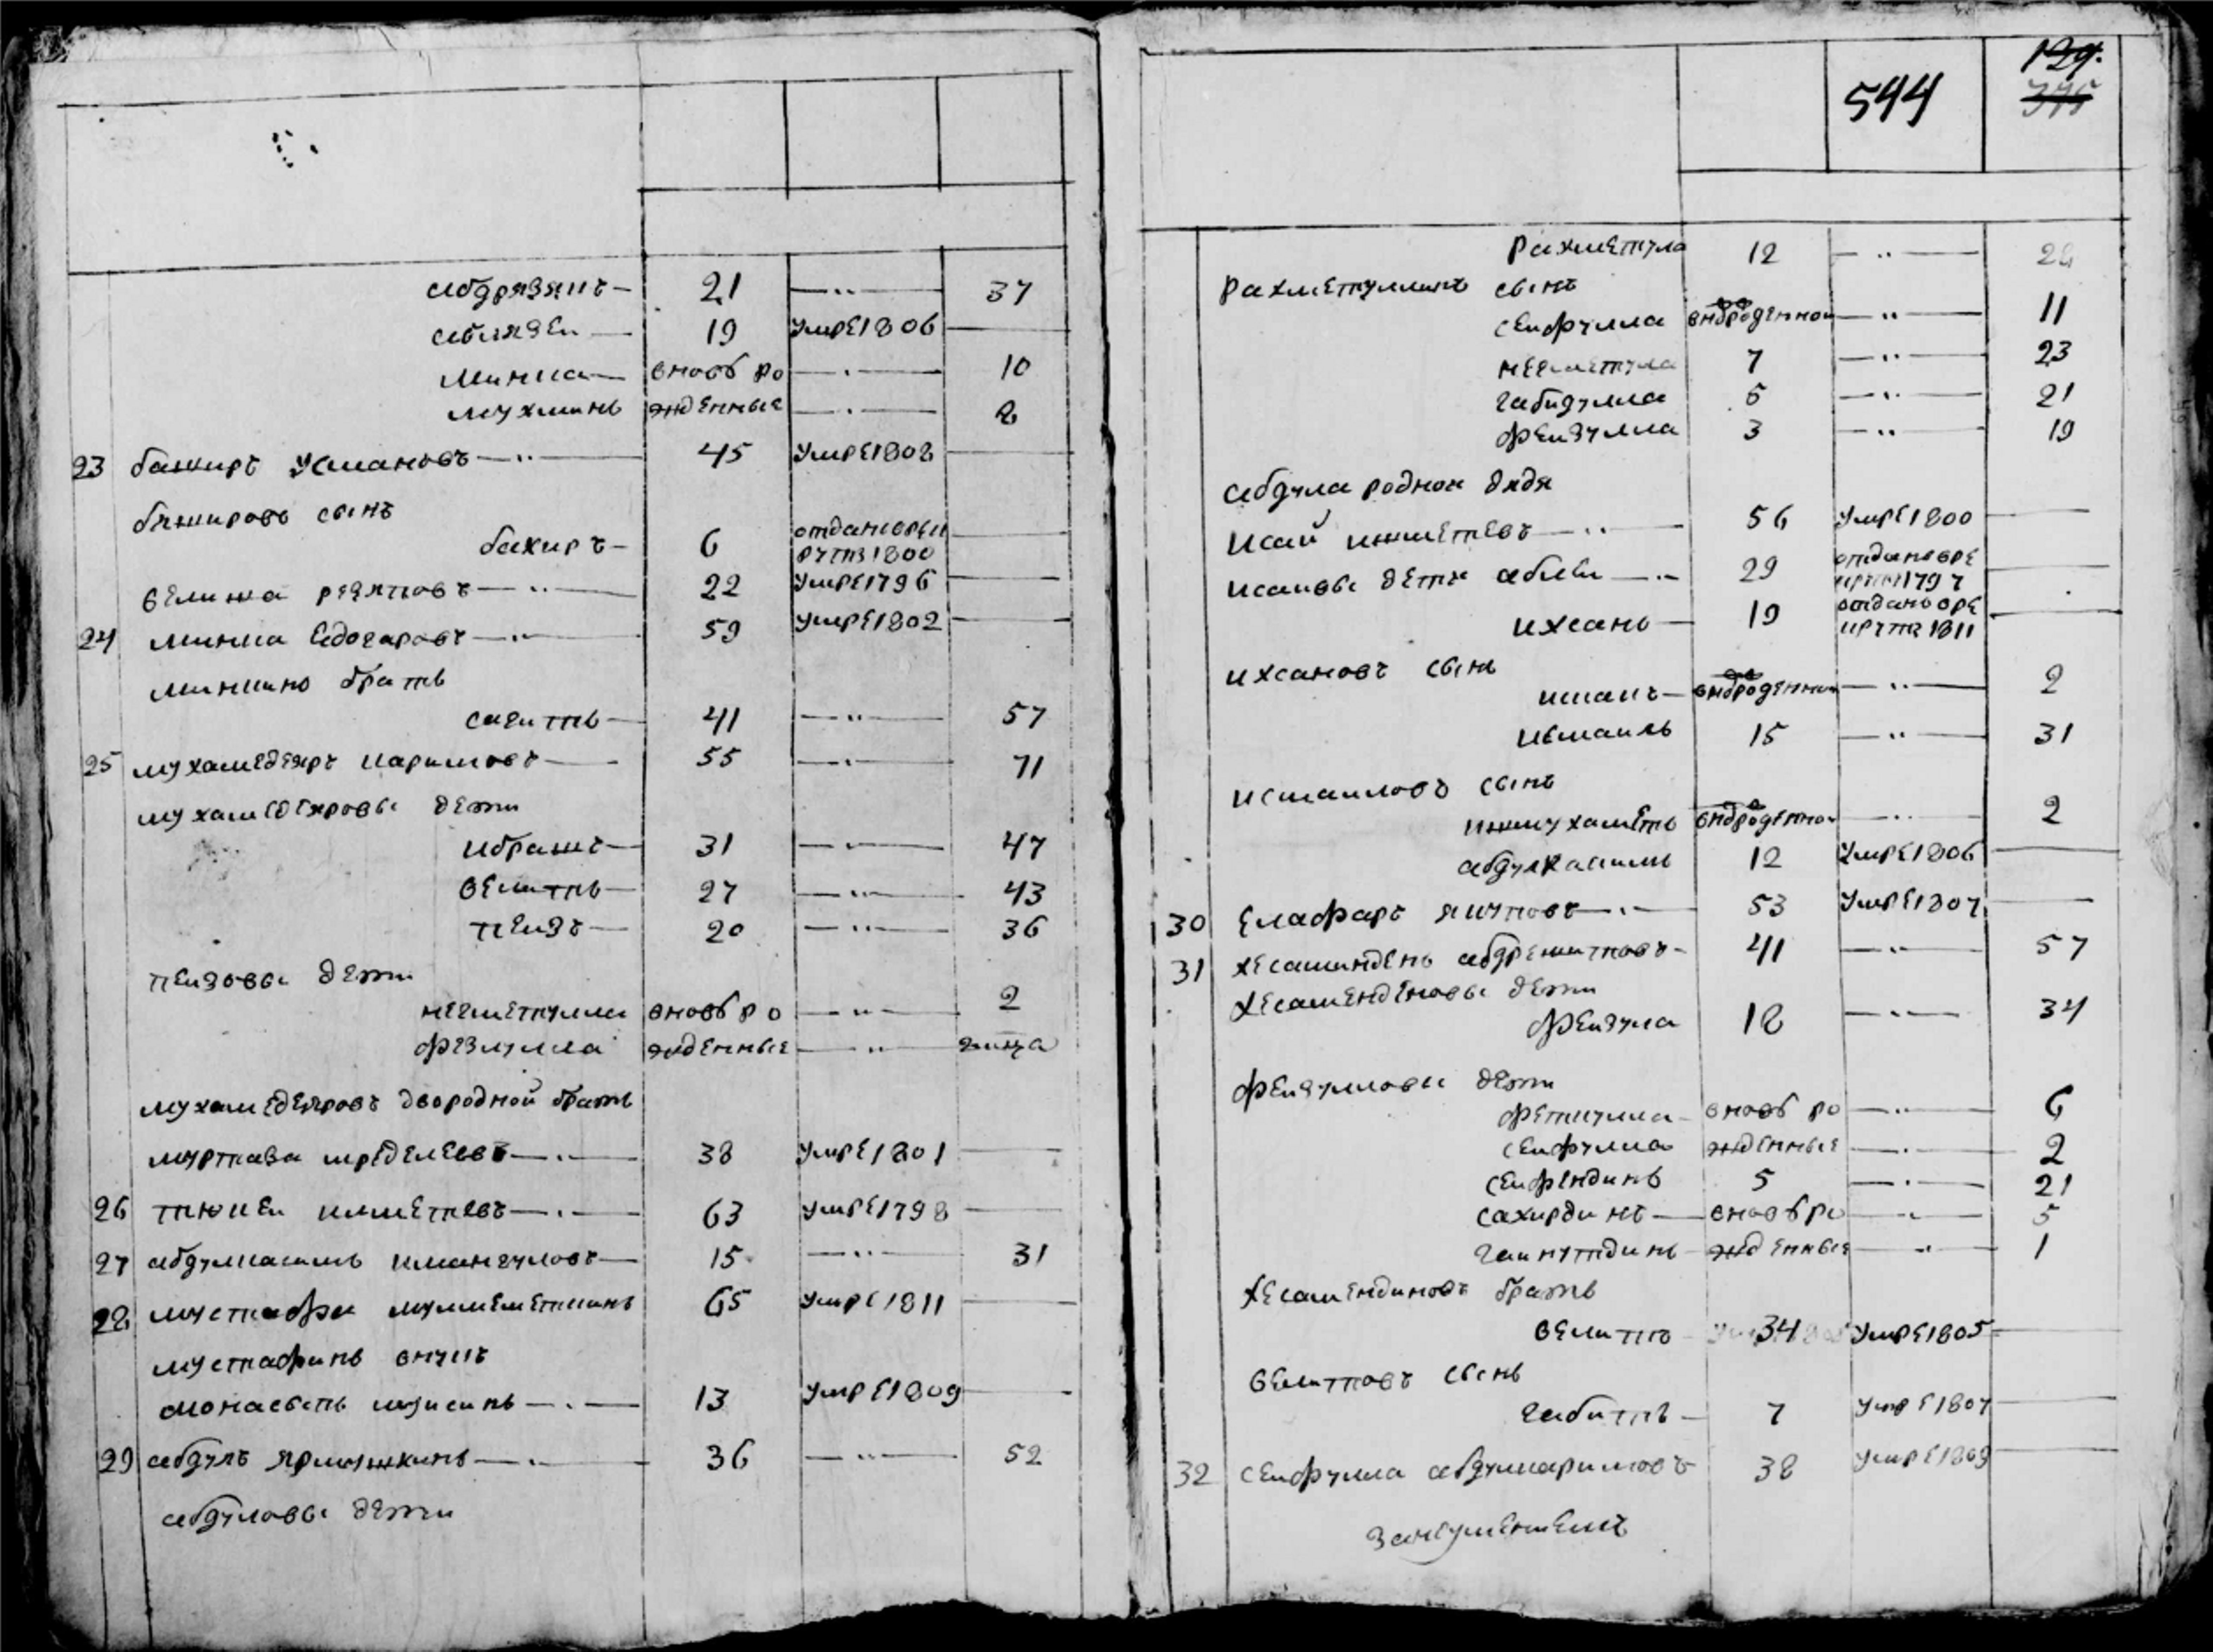 абдрязякъ — 21 — 37
аблязеи — 19 умре 1806 —
минка — вновь ро — 10
мухминь жденные — 8
23 баширъ усмановъ — 45 умре 1808 —
бяшировъ сынъ
бахиръ — 6 отданъ в рек
рутъ 1800 —
велиша резяповъ — 22 умре 1796 —
24 минка едогаровъ — 59 умре 1802 —
минкинъ братъ
сагитъ — 41 — 57
25 мухамедеяръ каримовъ — 55 — 71
мухамедеяровы дети
ибрашъ — 31 — 47
велитъ — 27 — 43
тпеизъ — 20 — 36
пеизовы дети
негметкулла вновь ро — 2
фезлулла жденные — лица
мухамедеяровъ двородной братъ
муртаза мрделеевъ — 38 умре 1801 —
26 тюкеи илметевъ — 63 умре 1798 —
27 абдулкасимъ иманкуловъ — 15 — 31
28 мустафа мулмеметкинъ 65 умре 1811 —
мустафинъ внукъ
монасыпъ мусинъ — 13 умре 1809 —
29 абдулъ ярмушкинъ — 36 — 52
абдуловы дети
544 129.
рахметула 12 — 28
рахметуллинъ сынъ
сеифулла внврожденнои — 11
негметула 7 — 23
габидулла 5 — 21
феизулла 3 — 19
абдула роднои дядя
исаи ишметевъ — 56 умре 1800 —
исаивы дети аблеи — 29 отданъ в ре
крутъ 1797 —
ихсанъ — 19 отданъ в ре
крутъ 1811 —
ихсановъ сынъ
ишаиъ — внврожденнои — 2
исмаилъ 15 — 31
исмаиловъ сынъ
ишмухаметъ внврожденнои — 2
абдулкасимъ 12 умре 1806 —
30 елафаръ якуповъ — 53 умре 1807 —
31 хесаминденъ абдрешитовъ — 41 — 57
хесаменденовы дети
феизула 18 — 34
феизулловы дети
феткулла — вновь ро — 6
сеифулла жденные — 2
сеифендинъ 5 — 21
сахирдинъ — вновь ро — 5
гаинутдинъ — жденные — 1
хесамендиновъ братъ
велитъ 34 умре 1805 —
велитовъ сынъ
габитъ — 7 умре 1807 —
32 сеифулла абдулкаримовъ 38 умре 1809 —